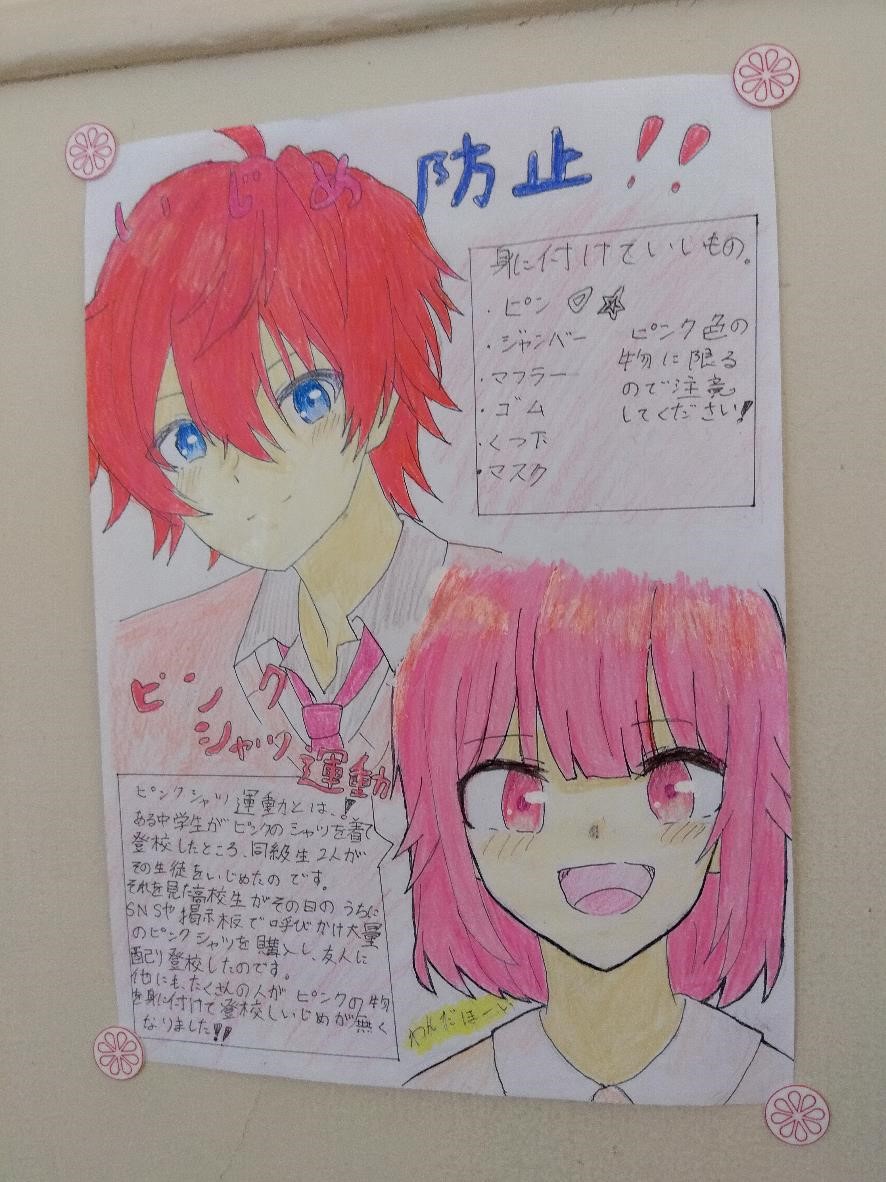 いじめ防止!!
身に付けていいもの。
・ピン ♡☆
・ジャンバー
・マフラー
・ゴム
・くつ下
・マスク
ピンク色の
物に限る
ので注意
してください!
ピンク
シャツ
運動
ピンクシャツ運動とは、!
ある中学生がピンクのシャツを着て
登校したところ、同級生2人が
その生徒をいじめたのです。
それを見た高校生がその日のうちに
SNSや掲示板で呼びかけ大量
のピンクシャツを購入し、友人に
配り登校したのです。
他にも、たくさんの人がピンクの物
を身に付けて登校しいじめが無く
なりました!!
わんだほーい